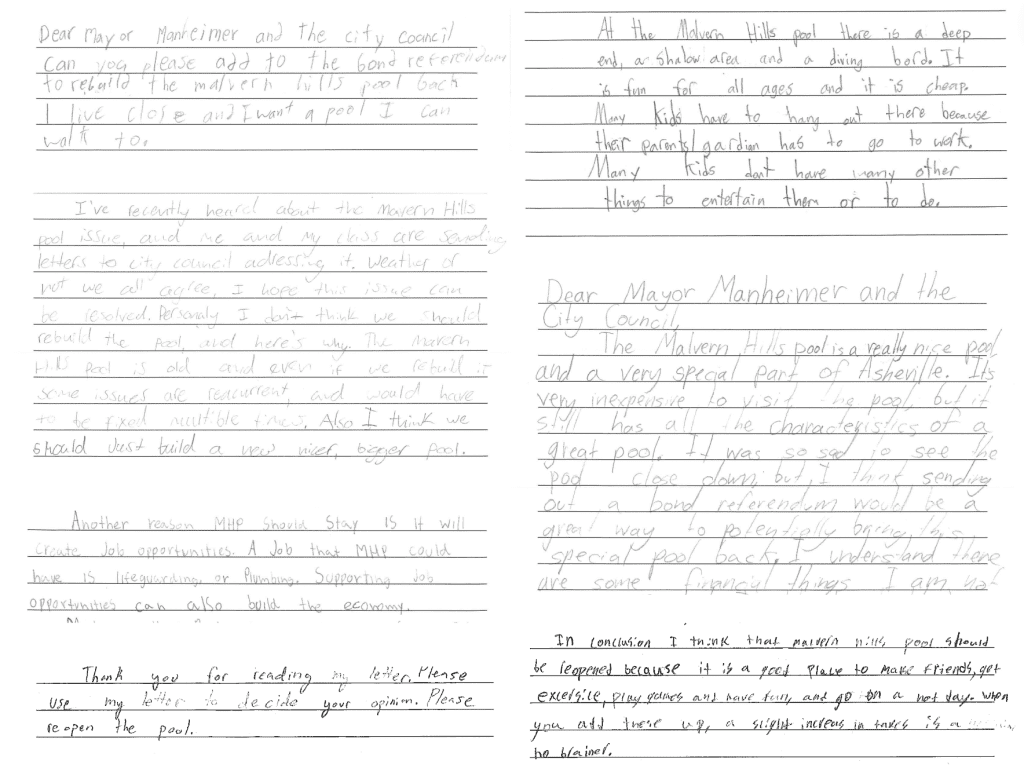 Dear Mayor Manheimer and the city Council
Can you please add to the bond referendum
to rebuild the malvern hills pool back
I live close and I want a pool I can
walk to.
I've recently heard about the Mavern Hills
pool issue, and me and my class are sending
letters to city council adressing it. Weather or
not we all agree, I hope this issue can
be resolved. Personaly I don't think we should
rebuild the pool, and here's why. The Mavern
Hills Pool is old and even if we rebuil it
some issues are reacurrent, and would have
to be fixed multible times. Also I think we
should just build a new nicer, bigger pool.
Another reason MHP should stay is it will
create Job opportunities. A Job that MHP could
have is lifeguarding, or Plumbing. Supporting Job
opportunities can also build the economy.
Thank you for reading my letter. Please
use my letter to decide your opinion. Please
reopen the pool.
At the Malvern Hills pool there is a deep
end, a shalow area and a diving bord. It
is fun for all ages and it is cheap.
Many kids have to hang out there because
their parents/gardian has to go to work.
Many kids dont have many other
things to entertain them or to do.
Dear Mayor Manheimer and the
City Council,
The Malvern Hills pool is a really nice pool
and a very special part of Asheville. Its
very inexpensive to visit the pool, but it
still has all the characteristics of a
great pool. It was so sad to see the
pool close down, but I think sending
out a bond referendum would be a
great way to potentially bring this
special pool back. I understand there
are some financial things I am not
In conclusion I think that malvern hills pool should
be reopened because it is a good place to make friends, get
excersise, play games and have fun, and go on a hot day. when
you add these up, a slight increas in taxes is a
no brainer.